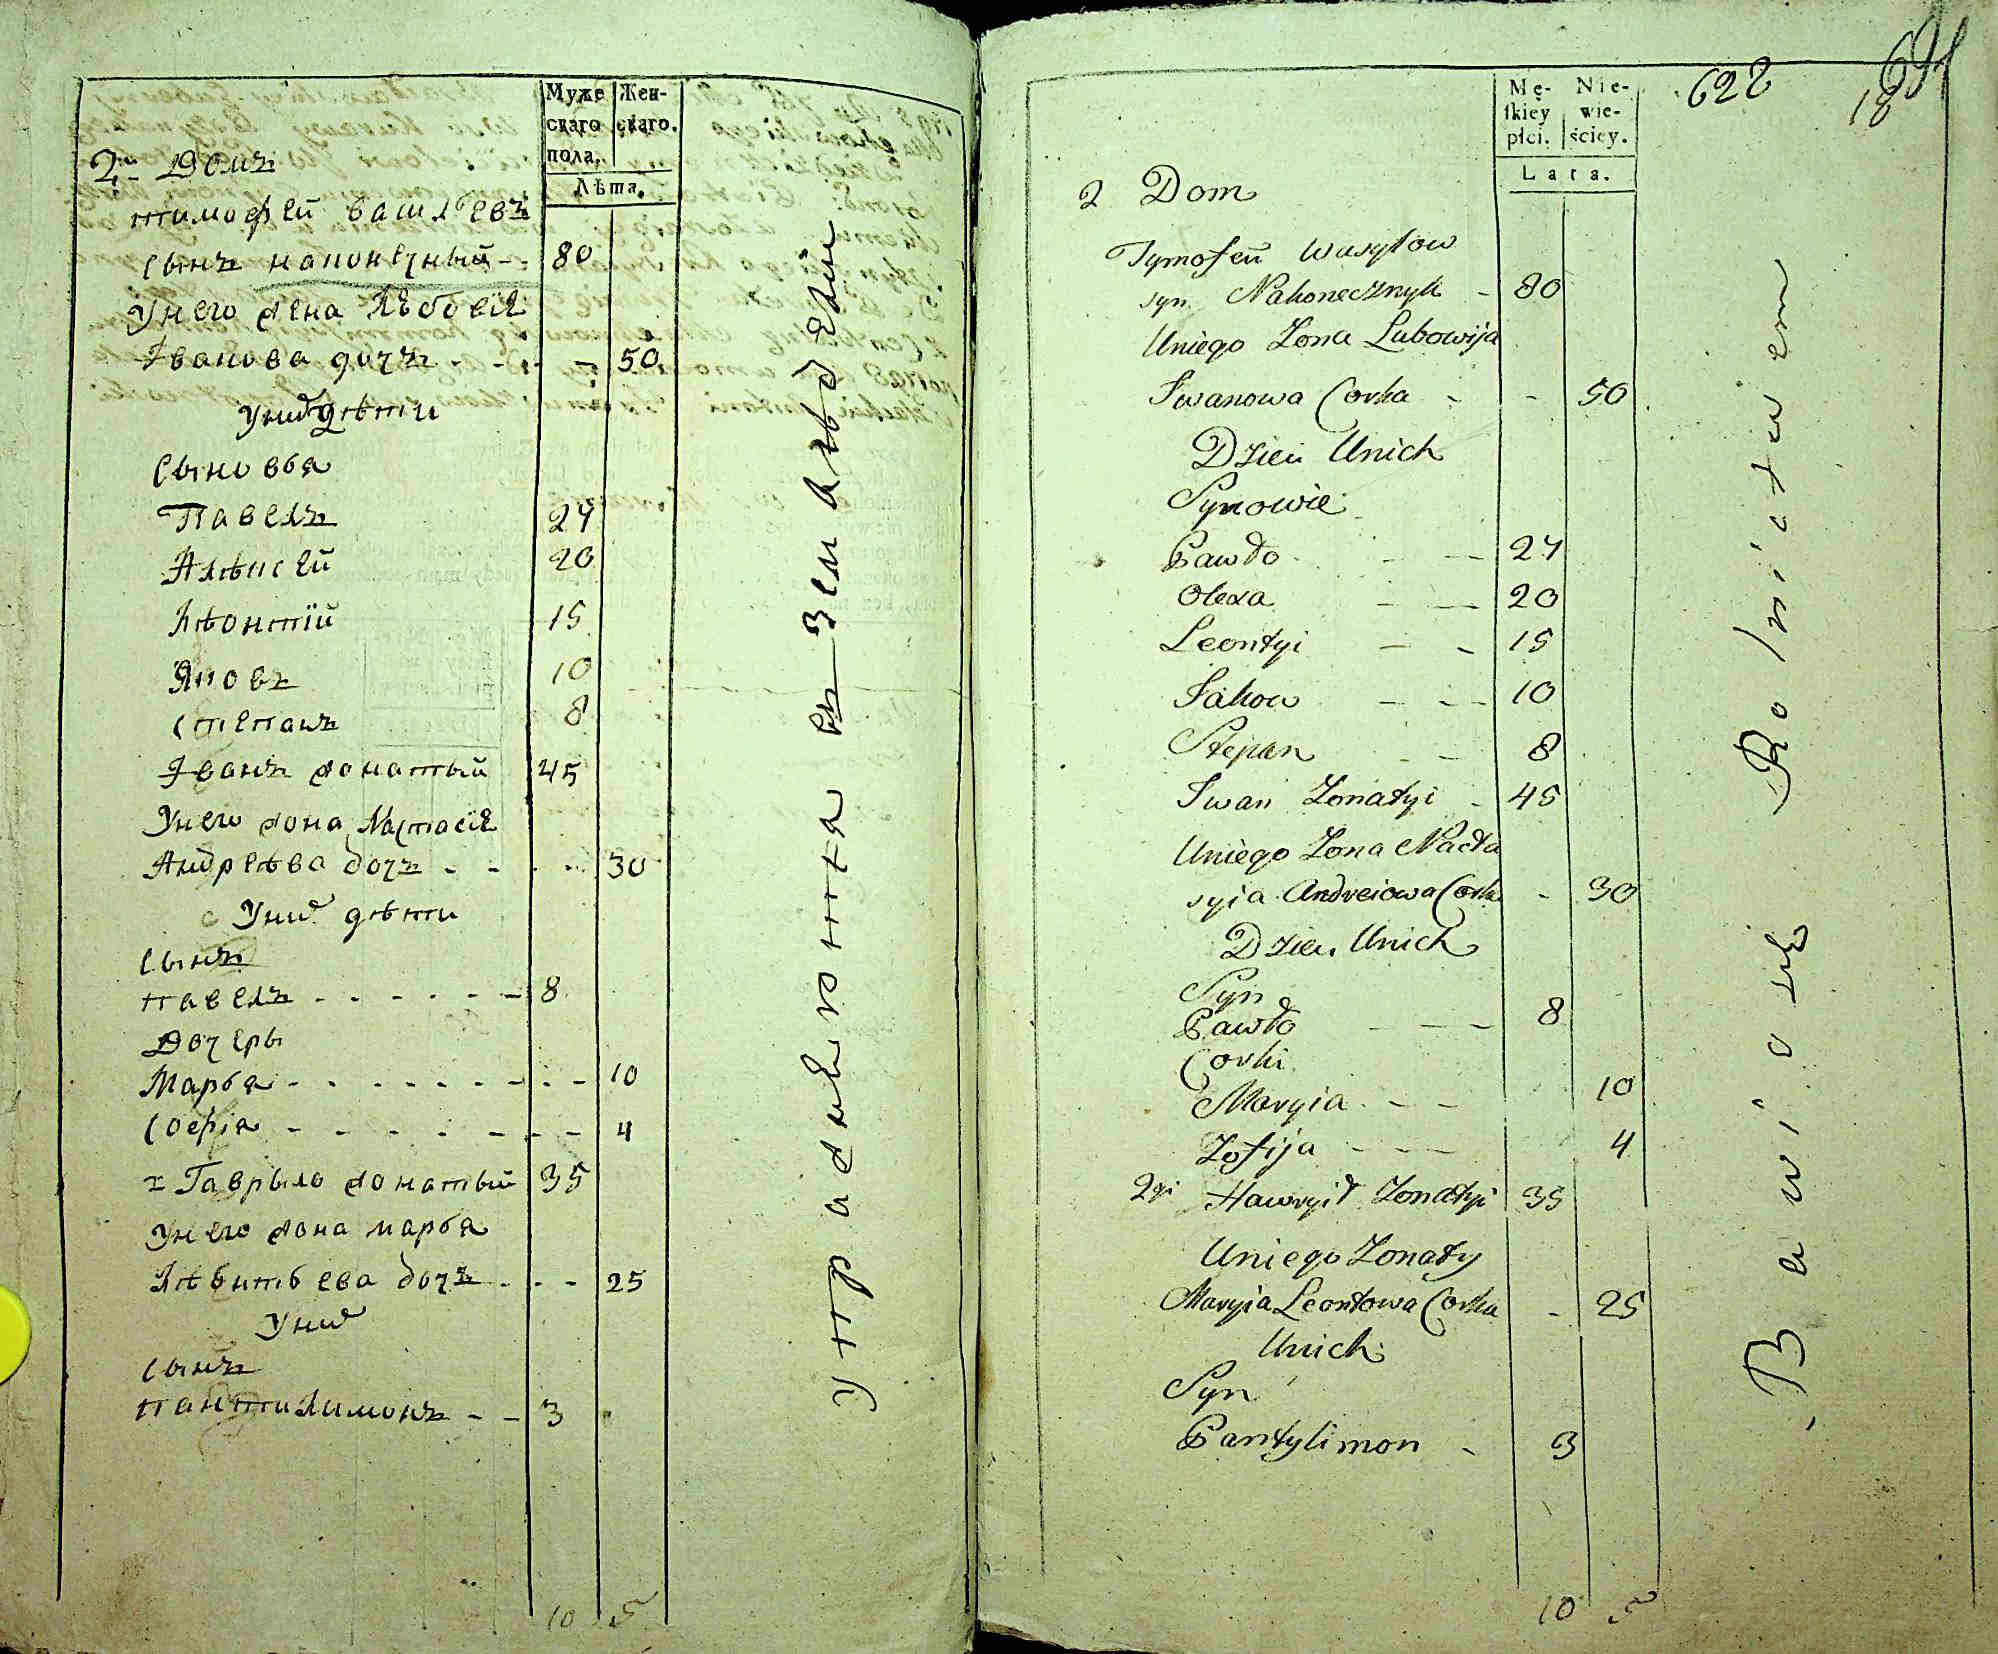 Муже
скаго
пола.
Жен-
скаго.
Лѣта.
2й Домъ
тимофей василевъ
сынъ наконечный - - 80
Унего жена Любовія
Іванова дочъ - - - - 50
Унихъ дѣти
сыновья
Павелъ 24
Алѣксей 20
Лѣонтій 15
Яковъ 10
степанъ 8
Іванъ жонатый 45
Унего жона Настасія
Андрѣева дочъ - - - - 30
Унихъ дѣти
сынъ
павелъ - - - - - - 8
Дочеры
Марья - - - - - - - - 10
софія - - - - - - - 4
2 Гаврыло жонатый 35
Унего жона марья
Лѣвитьева дочъ - - - 25
Унихъ
сынъ
пантилимонъ - - 3
10 5
упражнеются въ земледелии
622
18
Mę-
ſkiey
płci.
Nie-
wie-
ściey.
Lata.
2 Dom
Tymofeii Wasylow
syn Nakonecznyk - 80
Uniego Zona Lubowija
Iwanowa Corka - - 50
Dzieci Unich
Synowie
Pawło - - 24
Olexa - - 20
Leontyi - - 15
Jakow - - - 10
Stepan - - 8
Iwan Zonatyi - 45
Uniego Zona Nasta
syia Andreiowa Corka - 30
Dzieci Unich
Syn
Pawło - - - 8
Corki
Maryia - - - 10
Zofija - - - - 4
2gi Hawrył Zonatyi 35
Uniego Zonaty
Maryia Leontowa Corka - 25
Unich
Syn
Pantylimon - 3
10 5
Bawią się Rolnictwem